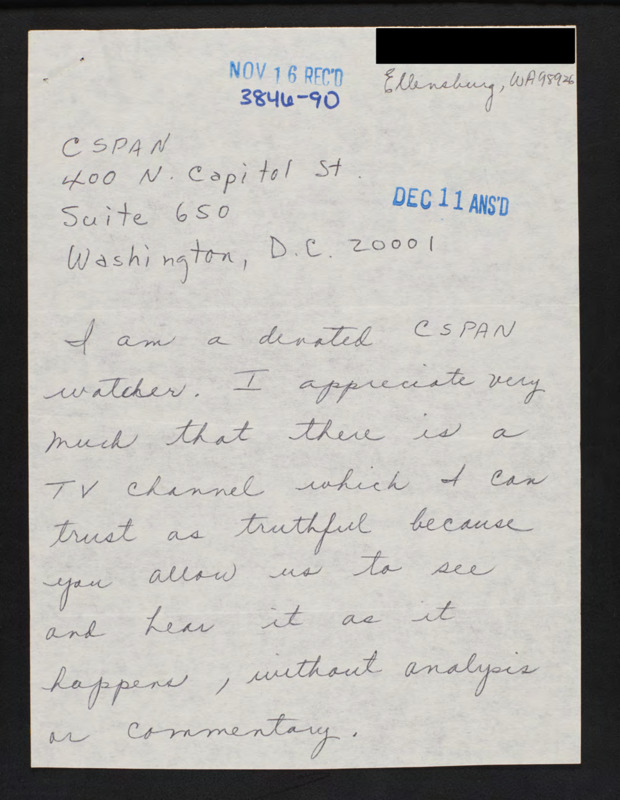 NOV 16 REC'D
3846-90
Ellensburg, WA 98926
CSPAN
400 N. Capitol St.
Suite 650
DEC 11 ANS'D
Washington, D.C. 20001
I am a devoted CSPAN
watcher. I appreciate very
much that there is a
TV channel which I can
trust as truthful because
you allow us to see
and hear it as it
happens, without analysis
or commentary.